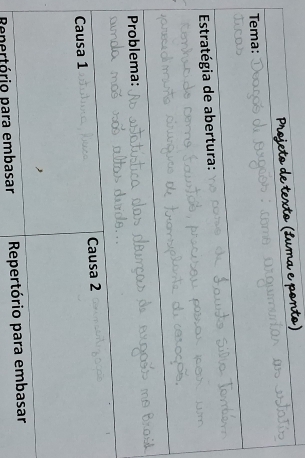 Projeto de texto (Luma e ponto)
Tema: Doação de órgãos: como argumentar as estatís
ticas
Estratégia de abertura: o caso de Fausto Silva também
conhecido como Faustão, precisou passar por um
procedimento cirúrgico de transplante de coração.
Problema: As estatística das doenças de órgãos no Brasil
ainda não são altas devido...
Causa 1
Causa 2
Repertório para embasar
Repertório para embasar